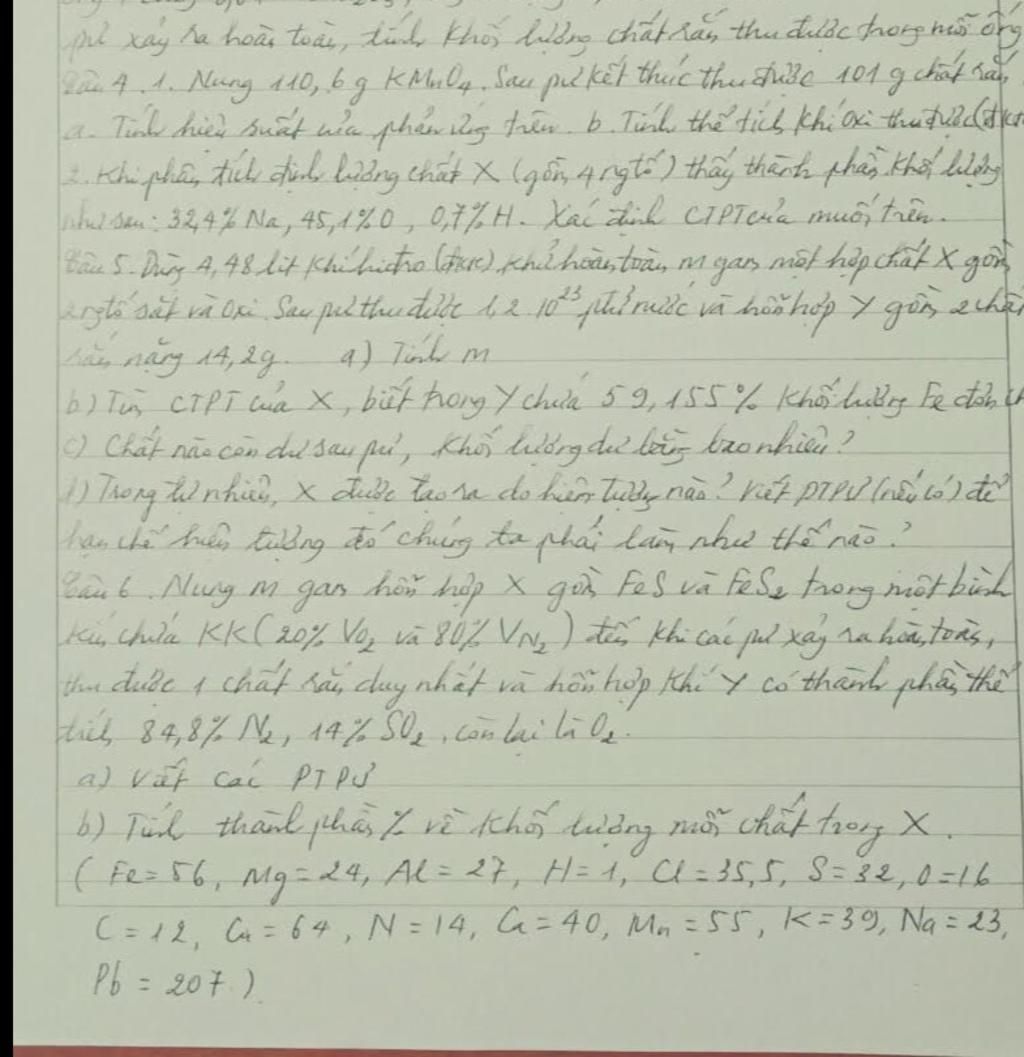 pư xảy ra hoàn toàn, tính khối lượng chất rắn thu được trong mỗi ống
Câu 4. 1. Nung 110,6 g KMnO4. Sau pư kết thúc thu được 101 g chất rắn
a. Tính hiệu suất của phản ứng trên. b. Tính thể tích khí oxi thu được (đktc
2. Khi phân tích định lượng chất X (gồm 4 ngtố) thấy thành phần khối lượng
như sau: 32,4% Na, 45,1% O, 0,7% H. Xác định CTPT của muối trên.
Câu 5. Dùng 4,48 lit khí hiđro (đktc) khử hoàn toàn m gam một hợp chất X gồm
2 ngtố sắt và oxi. Sau pư thu được 1,2.10^23 ptử nước và hỗn hợp Y gồm 2 chất
rắn nặng 14,2g. a) Tính m
b) Tìm CTPT của X, biết trong Y chứa 59,155% khối lượng Fe đơn ch
c) Chất nào còn dư sau pư, khối lượng dư bằng bao nhiêu?
d) Trong tự nhiên, X được tạo ra do hiện tượng nào? Viết PTPƯ (nếu có) để
hạn chế hiện tượng đó chúng ta phải làm như thế nào?
Câu 6. Nung m gam hỗn hợp X gồm FeS và FeS2 trong một bình
kín chứa KK (20% VO2 và 80% VN2) đến khi các pư xảy ra hoàn toàn,
thu được 1 chất rắn duy nhất và hỗn hợp khí Y có thành phần thể
tích 84,8% N2, 14% SO2, còn lại là O2.
a) Viết các PTPƯ
b) Tính thành phần % về khối lượng mỗi chất trong X.
(Fe=56, Mg=24, Al=27, H=1, Cl=35,5, S=32, O=16
C=12, Cu=64, N=14, Ca=40, Mn=55, K=39, Na=23,
Pb=207.)